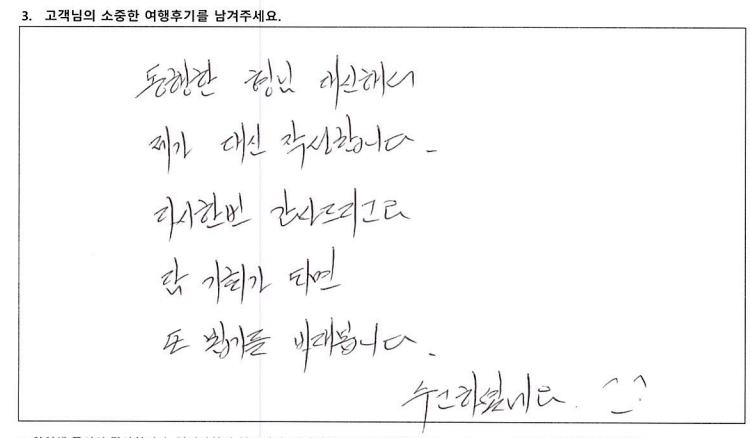 3. 고객님의 소중한 여행후기를 남겨주세요.
동행한 형님 대신해서
제가 대신 작성합니다.
다시한번 감사드리고요
담 기회가 되면
또 뵙기를 바래봅니다.
수고하셨네요. ^^